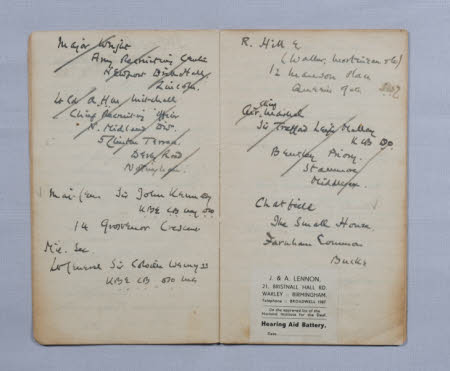 Major Wright
Army Recruiting Centre
Newport Drill Hall
Lincoln.
Lt Col
Mitchell
Chief Recruiting Officer
N. Midland Dis.
5 Clinton Terrace
Derby Road
Nottingham
Maj. Gen Sir John Kennedy
KBE CB MC
14 Grosvenor Crescent
Mil. Sec
Lt General Sir Colville Wemyss
KBE CB DSO MC
R. Hill &
(Waller, Mortimer
12 Manson Place
Queens Gate
Air Chief Marshal
Sir Trafford Leigh Mallory
KCB DSO
Bentley Priory.
Stanmore
Middlesex.
Chatfield
The Small House
Farnham Common
Bucks
J. & A. LENNON,
21, BRISTNALL HALL RD.
WARLEY - BIRMINGHAM.
Telephone - BROADWELL 1087
On the approved list of the
National Institute for the Deaf
Hearing Aid Battery.
Date